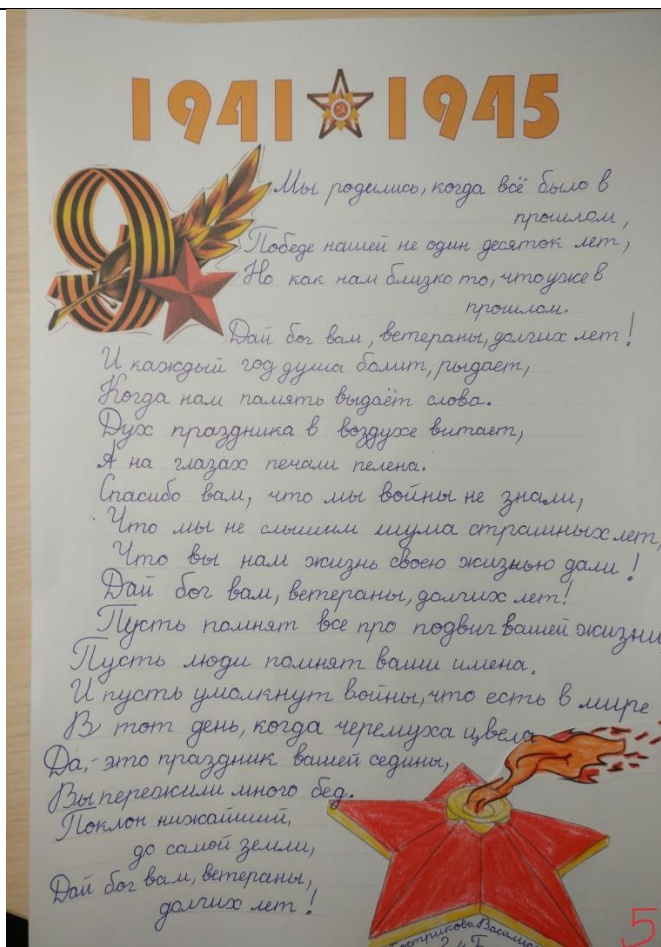 1941 1945
Мы родились, когда всё было в
прошлом,
Победе нашей не один десяток лет,
Но как нам близко то, что уже в
прошлом.
Дай бог вам, ветераны, долгих лет!
И каждый год душа болит, рыдает,
Когда нам память выдаёт слова.
Дух праздника в воздухе витает,
А на глазах печали пелена.
Спасибо вам, что мы войны не знали,
Что мы не слышим шума страшных лет,
Что вы нам жизнь своею жизнью дали!
Дай бог вам, ветераны, долгих лет!
Пусть помнят все про подвиг вашей жизни
Пусть люди помнят ваши имена.
И пусть умолкнут войны, что есть в мире
В тот день, когда черемуха цвела
Да,-это праздник вашей седины,
Вы пережили много бед.
Поклон нижайший,
до самой земли,
Дай бог вам, ветераны,
долгих лет!
5